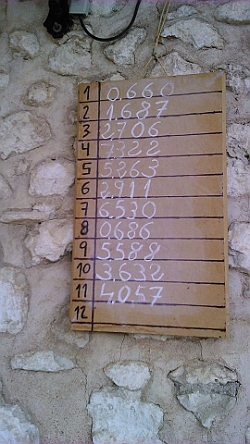 1 0.660
2 1.687
3 2.706
4 .322
5 5.263
6 2.911
7 6.530
8 0.686
9 5.588
10 3.632
11 4.057
12